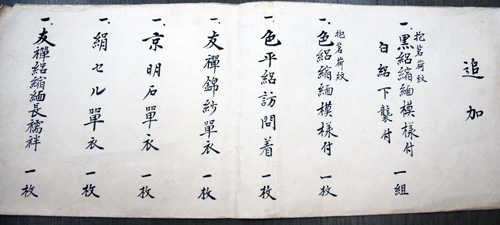 追加
抱茗荷紋
一、黒絽縮緬模様付 一組
白絽下襲付
抱茗荷紋
一、色絽縮緬模様付 一枚
一、色平絽訪問着 一枚
一、友禅錦紗單衣 一枚
一、京明石單衣 一枚
一、絹セル單衣 一枚
一、友禅絽縮緬長襦袢 一枚